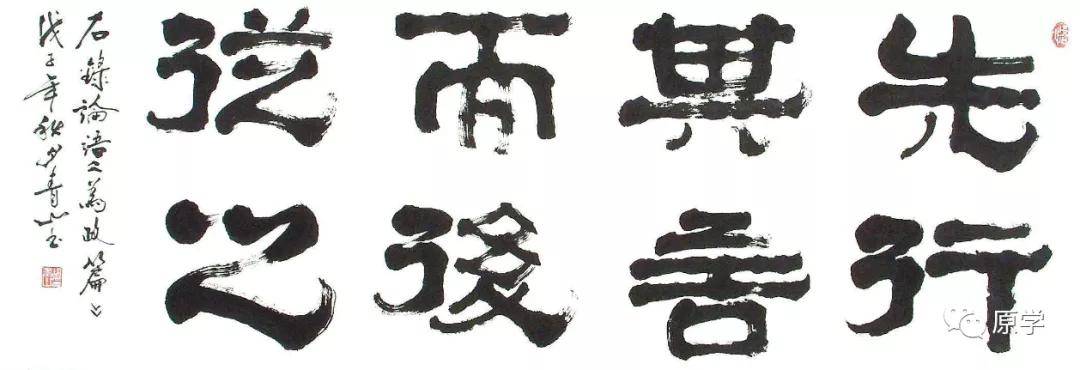 先行
其言
而後
從之
右錄論語《為政篇》
戊子年秋青山書
原学